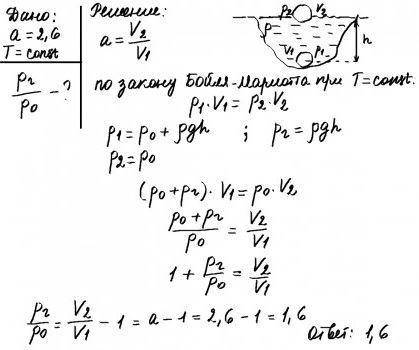 Дано:
a = 2,6
T = const
pг/p0 - ?
Решение:
a = V2/V1
p2 V2
p
V1 p1
h
по закону Бойля-Мариотта при T=const.
p1·V1 = p2·V2
p1 = p0 + ρgh ; pг = ρgh
p2 = p0
(p0 + pг)·V1 = p0·V2
(p0 + pг)/p0 = V2/V1
1 + pг/p0 = V2/V1
pг/p0 = V2/V1 - 1 = a - 1 = 2,6 - 1 = 1,6
Ответ: 1,6